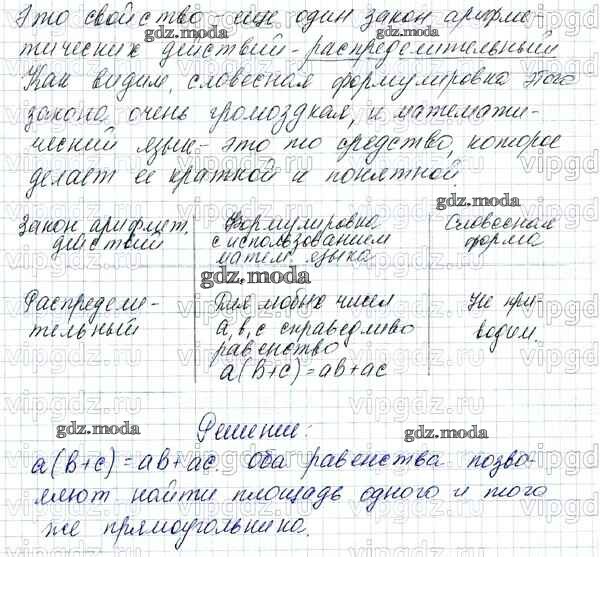 Это свойство - еще один закон арифме-
тических действий - распределительный
Как видим, словесная формулировка этого
закона очень громоздкая, и математи-
ческий язык - это то средство, которое
делает ее краткой и понятной
Закон арифмет. действий
Формулировка с использованием матем. языка
Словесная форма
Распредели-
тельный
Для любых чисел
a, b, c справедливо
равенство
a(b+c)=ab+ac
Не при-
водим.
Решение:
a(b+c)=ab+ac. Оба равенства позво-
ляют найти площадь одного и того
же прямоугольника.
gdz.moda
vipgdz.ru